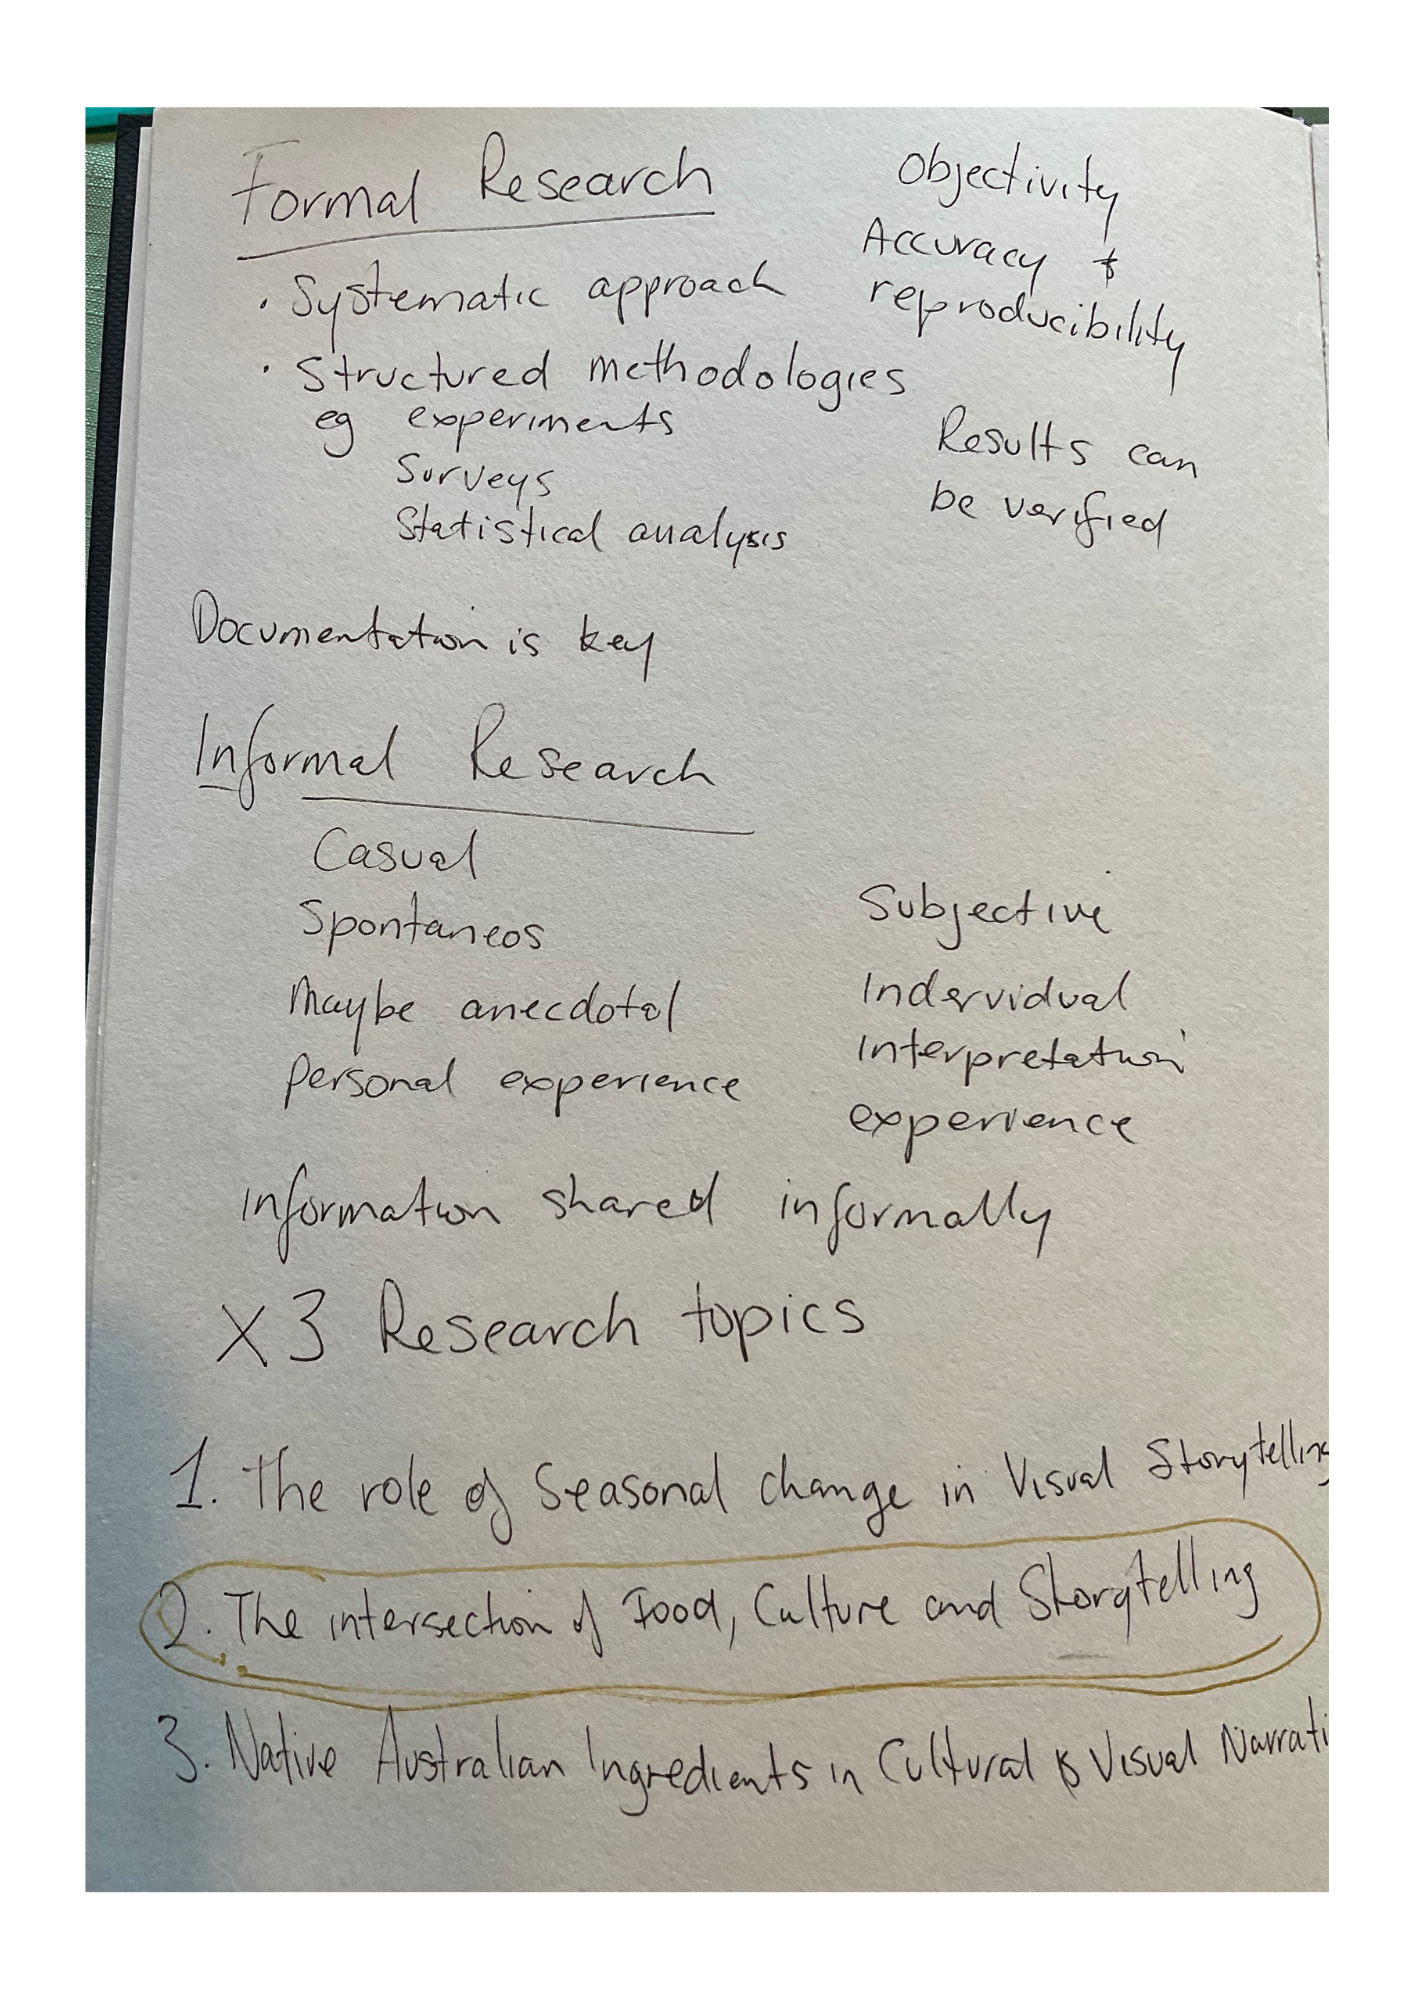 Formal Research
• Systematic approach
• Structured methodologies
eg experiments
Surveys
Statistical analysis
Objectivity
Accuracy &
reproducibility
Results can
be verified
Documentation is key
Informal Research
Casual
Spontaneos
Maybe anecdotal
Personal experience
Subjective
Individual
Interpretation
experience
Information shared informally
X3 Research topics
1. The role of Seasonal change in Visual Storytelling
2. The intersection of Food, Culture and Storytelling
3. Native Australian Ingredients in Cultural & Visual Narrati